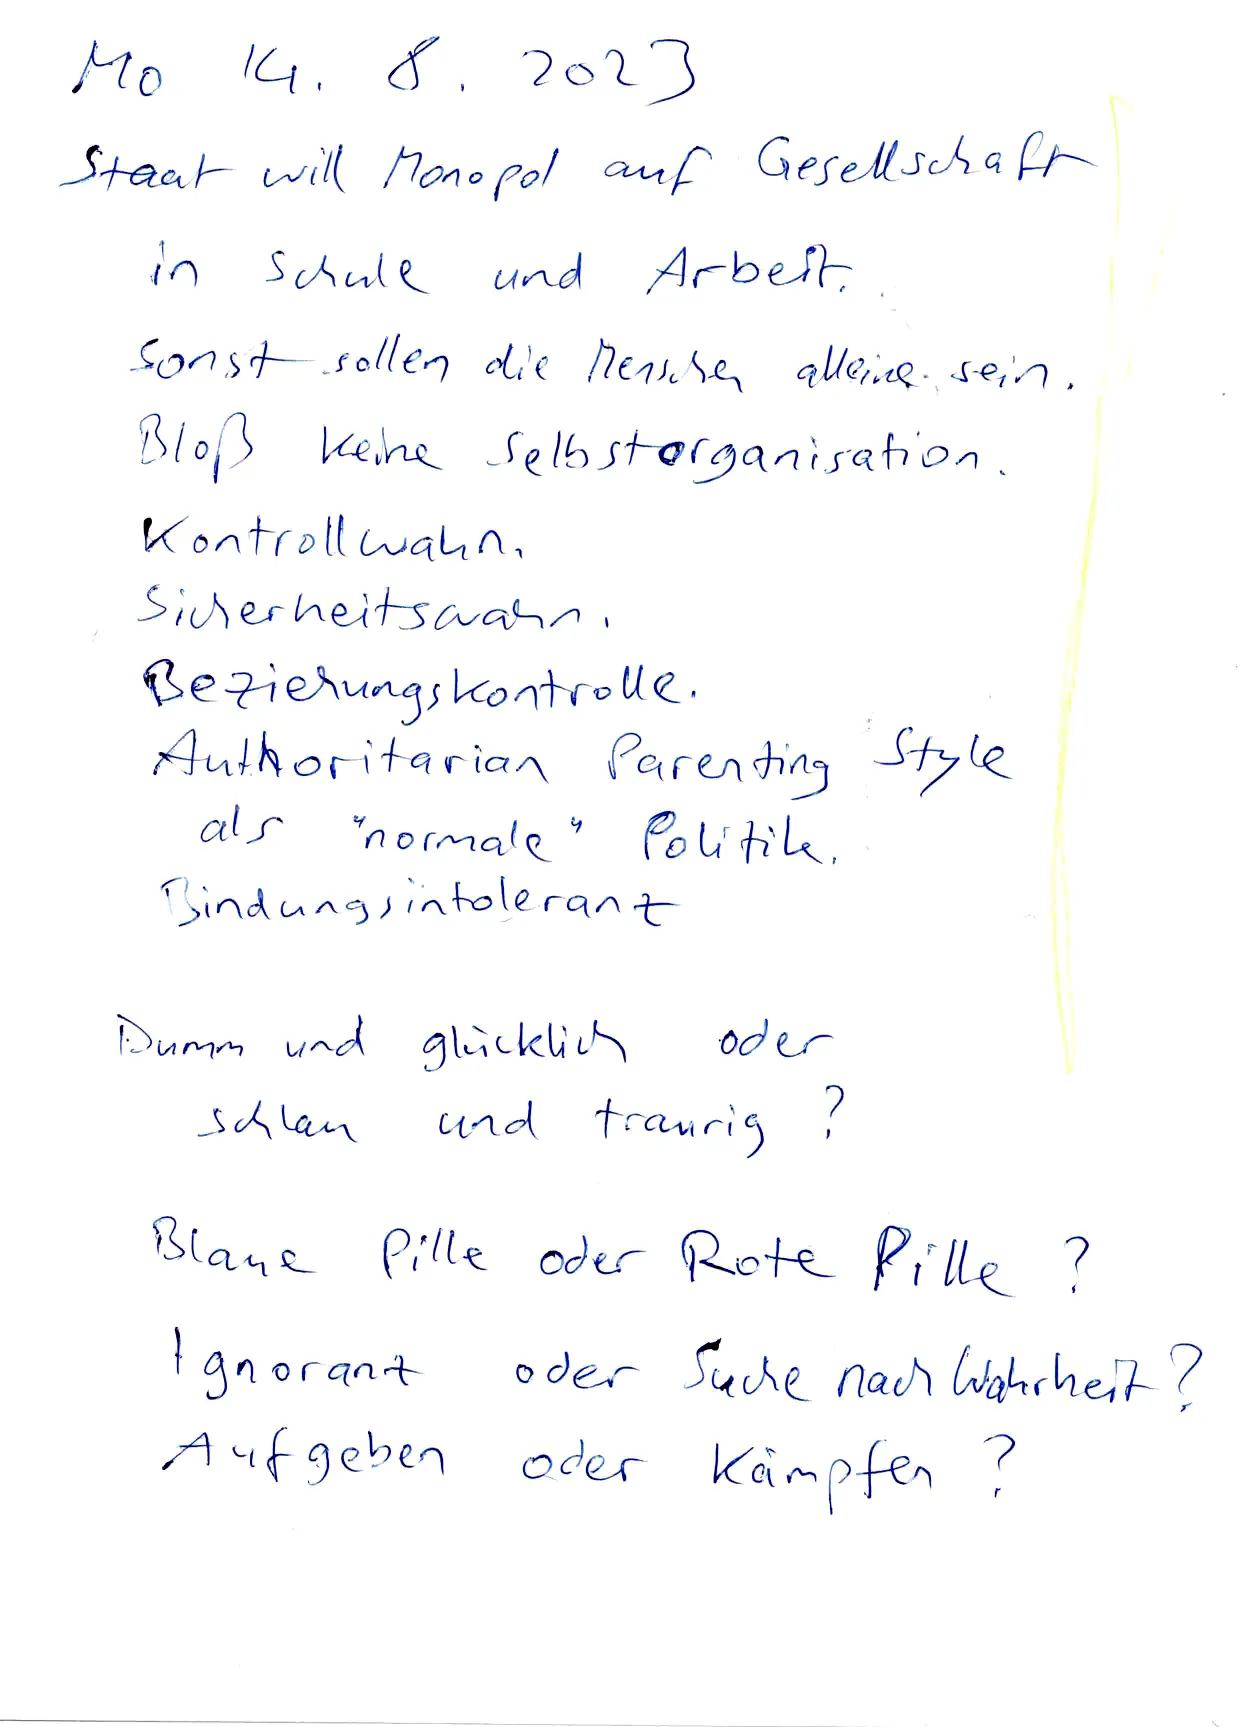 Mo 14. 8. 2023
Staat will Monopol auf Gesellschaft
in Schule und Arbeit.
Sonst sollen die Menschen alleine sein.
Bloß keine Selbstorganisation.
Kontrollwahn.
Sicherheitswahn.
Beziehungskontrolle.
Authoritarian Parenting Style
als "normale" Politik.
Bindungsintoleranz
Dumm und glücklich oder
schlau und traurig ?
Blaue Pille oder Rote Pille ?
Ignoranz oder Suche nach Wahrheit ?
Aufgeben oder Kämpfen ?